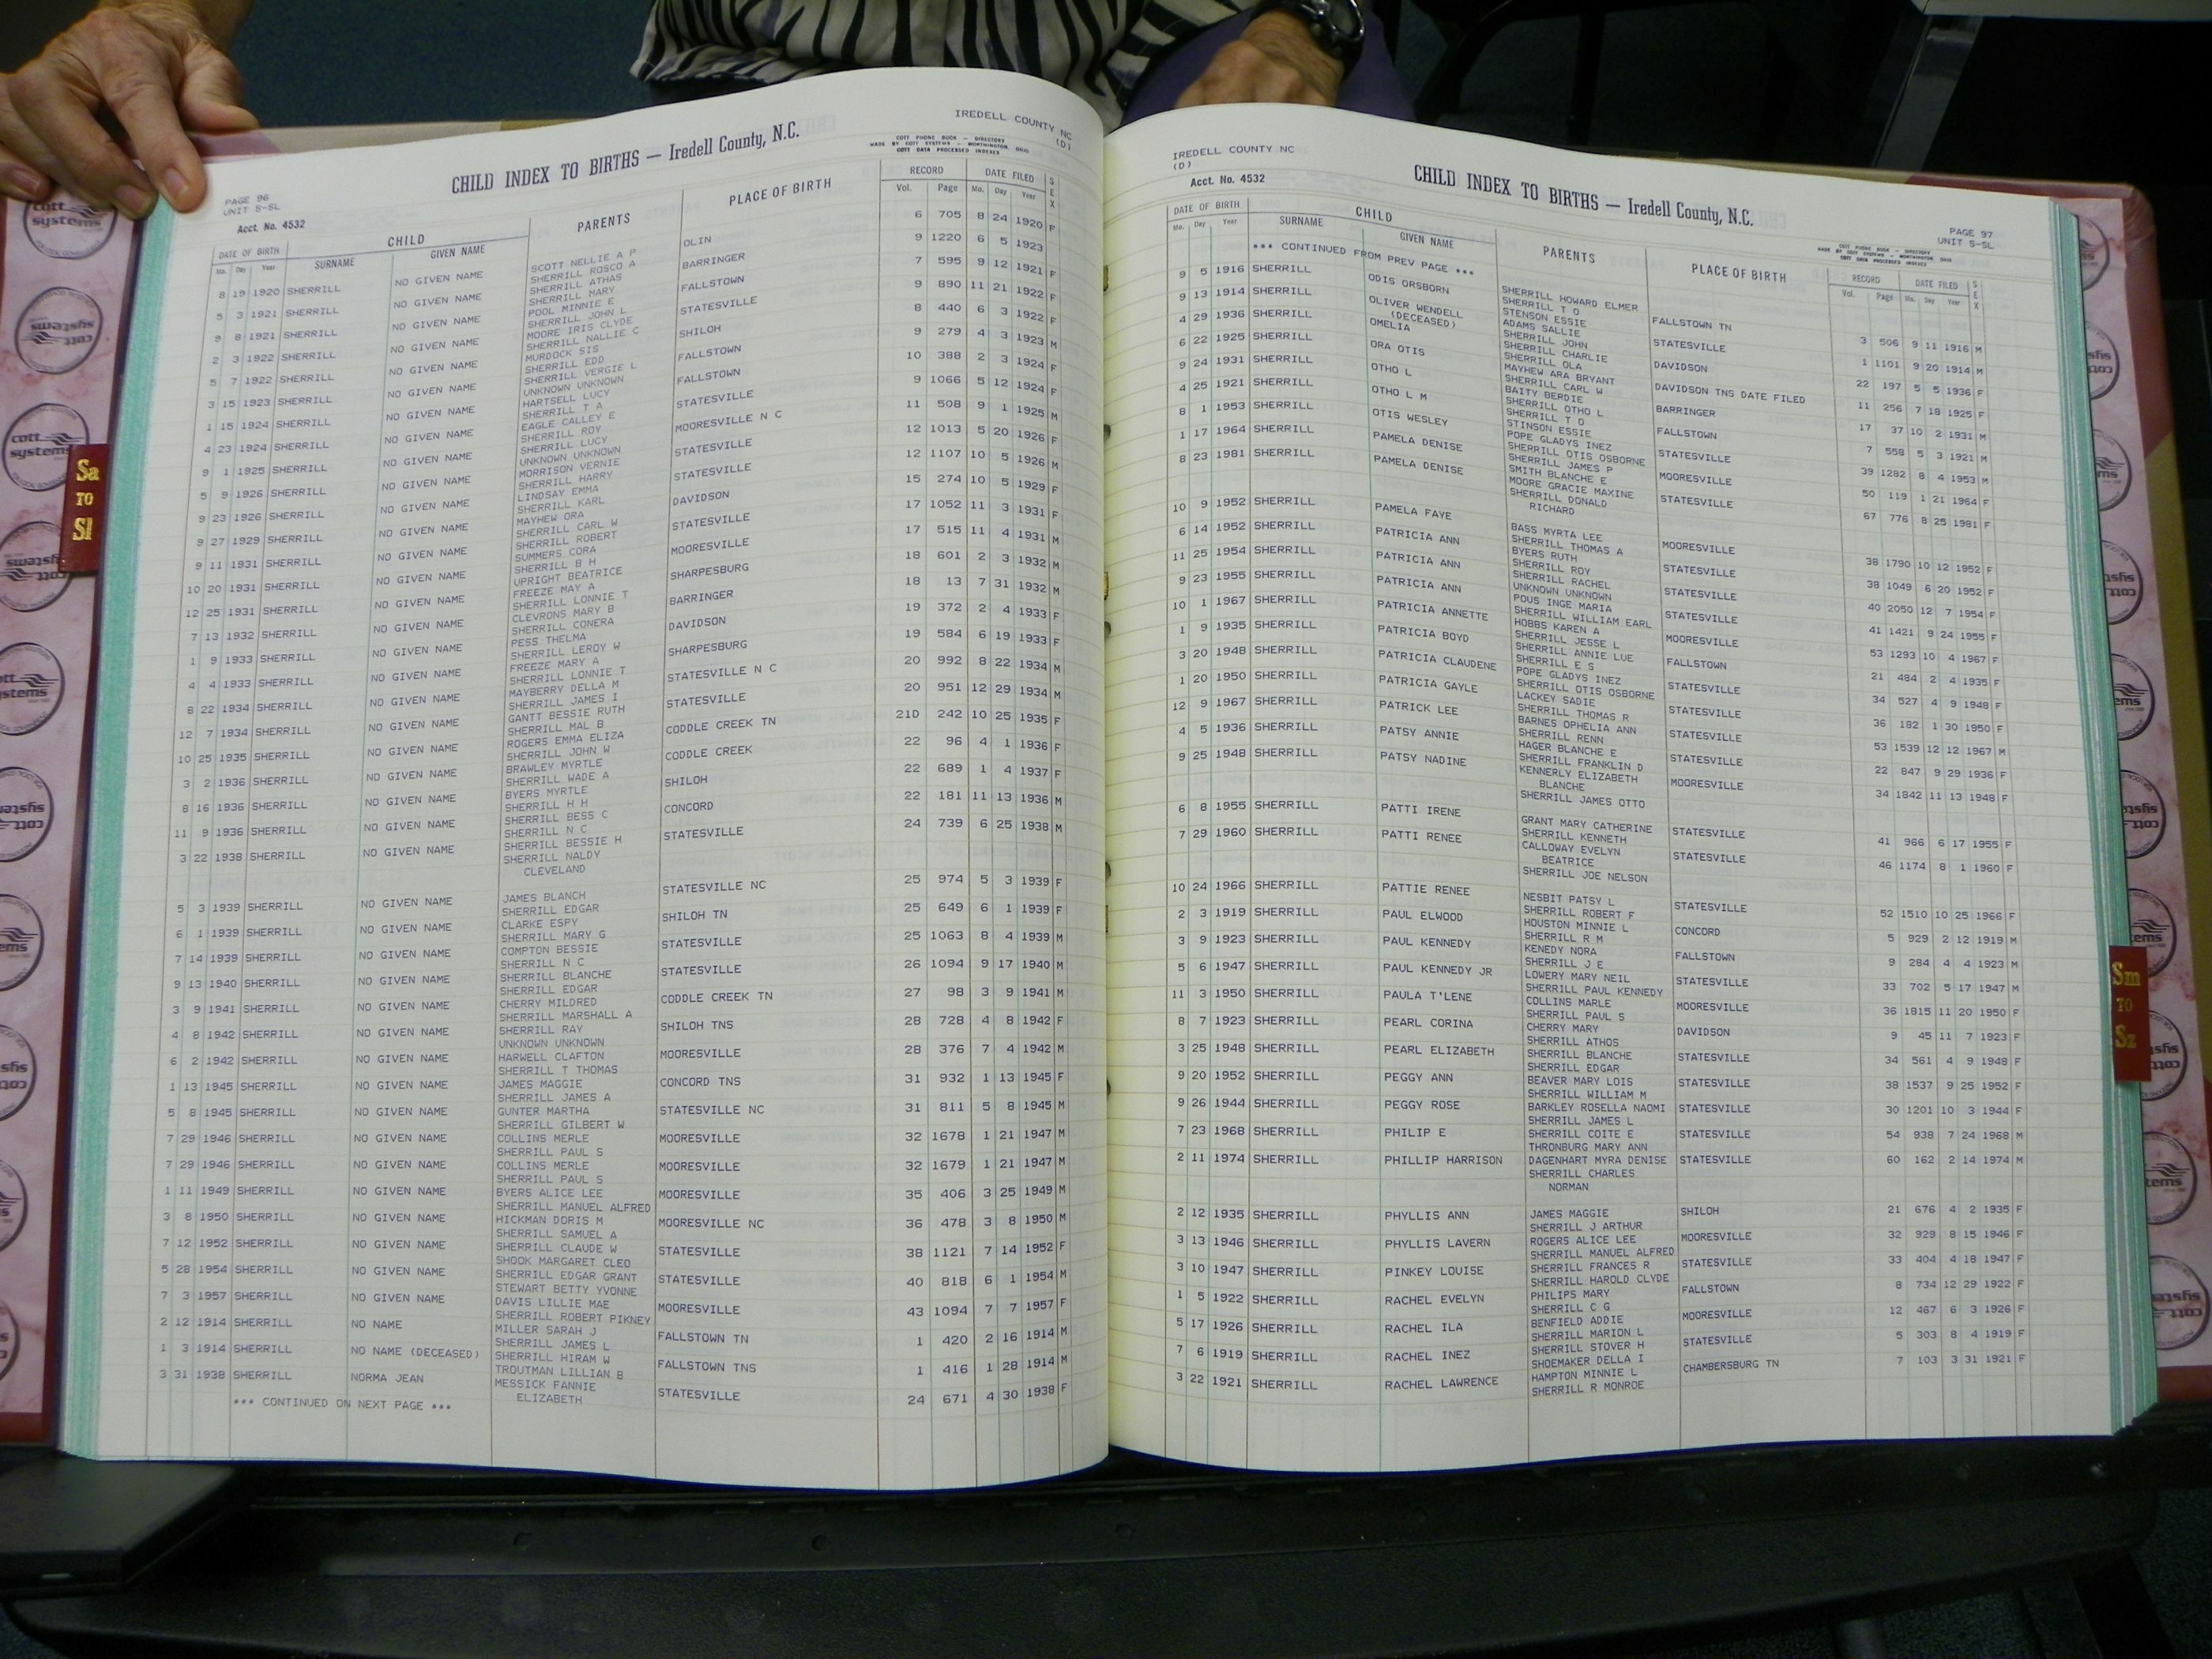 IREDELL COUNTY NC
(D)
COTT PHONE BOOK — DIRECTORY
MADE BY COTT SYSTEMS — WORTHINGTON, OHIO
COTT DATA PROCESSED INDEXES
CHILD INDEX TO BIRTHS — Iredell County, N.C.
PAGE 96
UNIT S-SL
Acct. No. 4532
DATE OF BIRTH CHILD PARENTS PLACE OF BIRTH RECORD DATE FILED SEX
Mo. Day Year SURNAME GIVEN NAME Vol. Page Mo. Day Year
8 19 1920 SHERRILL NO GIVEN NAME SCOTT NELLIE A P OLIN 6 705 8 24 1920 F
SHERRILL ROSCO A
5 3 1921 SHERRILL NO GIVEN NAME SHERRILL ATHAS BARRINGER 9 1220 6 5 1923
SHERRILL MARY
9 8 1921 SHERRILL NO GIVEN NAME POOL MINNIE E FALLSTOWN 7 595 9 12 1921 F
SHERRILL JOHN L
2 3 1922 SHERRILL NO GIVEN NAME MOORE IRIS CLYDE STATESVILLE 9 890 11 21 1922 F
SHERRILL NALLIE C
5 7 1922 SHERRILL NO GIVEN NAME MURDOCK SIS SHILOH 8 440 6 3 1922 F
SHERRILL EDD
3 15 1923 SHERRILL NO GIVEN NAME SHERRILL VERGIE L FALLSTOWN 9 279 4 3 1923 M
UNKNOWN UNKNOWN
1 15 1924 SHERRILL NO GIVEN NAME HARTSELL LUCY FALLSTOWN 10 388 2 3 1924 F
SHERRILL T A
4 23 1924 SHERRILL NO GIVEN NAME EAGLE CALLEY E STATESVILLE 9 1066 5 12 1924 F
SHERRILL ROY
9 1 1925 SHERRILL NO GIVEN NAME SHERRILL LUCY MOORESVILLE N C 11 508 9 1 1925 M
UNKNOWN UNKNOWN
5 9 1926 SHERRILL NO GIVEN NAME MORRISON VERNIE STATESVILLE 12 1013 5 20 1926 F
SHERRILL HARRY
9 23 1926 SHERRILL NO GIVEN NAME LINDSAY EMMA STATESVILLE 12 1107 10 5 1926 M
SHERRILL KARL
9 27 1929 SHERRILL NO GIVEN NAME MAYHEW ORA DAVIDSON 15 274 10 5 1929 F
SHERRILL CARL W
9 11 1931 SHERRILL NO GIVEN NAME SHERRILL ROBERT STATESVILLE 17 1052 11 3 1931 F
SUMMERS CORA
10 20 1931 SHERRILL NO GIVEN NAME SHERRILL B H MOORESVILLE 17 515 11 4 1931 M
UPRIGHT BEATRICE
12 25 1931 SHERRILL NO GIVEN NAME FREEZE MAY A SHARPESBURG 18 601 2 3 1932 M
SHERRILL LONNIE T
7 13 1932 SHERRILL NO GIVEN NAME CLEVRONS MARY B BARRINGER 18 13 7 31 1932 M
SHERRILL CONERA
1 9 1933 SHERRILL NO GIVEN NAME PESS THELMA DAVIDSON 19 372 2 4 1933 F
SHERRILL LEROY W
4 4 1933 SHERRILL NO GIVEN NAME FREEZE MARY A SHARPESBURG 19 584 6 19 1933 F
SHERRILL LONNIE T
8 22 1934 SHERRILL NO GIVEN NAME MAYBERRY DELLA M STATESVILLE N C 20 992 8 22 1934 M
SHERRILL JAMES I
12 7 1934 SHERRILL NO GIVEN NAME GANTT BESSIE RUTH STATESVILLE 20 951 12 29 1934 M
SHERRILL MAL B
10 25 1935 SHERRILL NO GIVEN NAME ROGERS EMMA ELIZA CODDLE CREEK TN 21D 242 10 25 1935 F
SHERRILL JOHN W
3 2 1936 SHERRILL NO GIVEN NAME BRAWLEY MYRTLE CODDLE CREEK 22 96 4 1 1936 F
SHERRILL WADE A
8 16 1936 SHERRILL NO GIVEN NAME BYERS MYRTLE SHILOH 22 689 1 4 1937 F
SHERRILL H H
11 9 1936 SHERRILL NO GIVEN NAME SHERRILL BESS C CONCORD 22 181 11 13 1936 M
SHERRILL N C
3 22 1938 SHERRILL NO GIVEN NAME SHERRILL BESSIE H STATESVILLE 24 739 6 25 1938 M
SHERRILL NALDY
CLEVELAND
5 3 1939 SHERRILL NO GIVEN NAME JAMES BLANCH STATESVILLE NC 25 974 5 3 1939 F
SHERRILL EDGAR
6 1 1939 SHERRILL NO GIVEN NAME CLARKE ESPY SHILOH TN 25 649 6 1 1939 F
SHERRILL MARY G
7 14 1939 SHERRILL NO GIVEN NAME COMPTON BESSIE STATESVILLE 25 1063 8 4 1939 M
SHERRILL N C
9 13 1940 SHERRILL NO GIVEN NAME SHERRILL BLANCHE STATESVILLE 26 1094 9 17 1940 M
SHERRILL EDGAR
3 9 1941 SHERRILL NO GIVEN NAME CHERRY MILDRED CODDLE CREEK TN 27 98 3 9 1941 M
SHERRILL MARSHALL A
4 8 1942 SHERRILL NO GIVEN NAME SHERRILL RAY SHILOH TNS 28 728 4 8 1942 F
UNKNOWN UNKNOWN
6 2 1942 SHERRILL NO GIVEN NAME HARWELL CLAFTON MOORESVILLE 28 376 7 4 1942 M
SHERRILL T THOMAS
1 13 1945 SHERRILL NO GIVEN NAME JAMES MAGGIE CONCORD TNS 31 932 1 13 1945 F
SHERRILL JAMES A
5 8 1945 SHERRILL NO GIVEN NAME GUNTER MARTHA STATESVILLE NC 31 811 5 8 1945 M
SHERRILL GILBERT W
7 29 1946 SHERRILL NO GIVEN NAME COLLINS MERLE MOORESVILLE 32 1678 1 21 1947 M
SHERRILL PAUL S
7 29 1946 SHERRILL NO GIVEN NAME COLLINS MERLE MOORESVILLE 32 1679 1 21 1947 M
SHERRILL PAUL S
1 11 1949 SHERRILL NO GIVEN NAME BYERS ALICE LEE MOORESVILLE 35 406 3 25 1949 M
SHERRILL MANUEL ALFRED
3 8 1950 SHERRILL NO GIVEN NAME HICKMAN DORIS M MOORESVILLE NC 36 478 3 8 1950 M
SHERRILL SAMUEL A
7 12 1952 SHERRILL NO GIVEN NAME SHERRILL CLAUDE W STATESVILLE 38 1121 7 14 1952 F
SHOOK MARGARET CLEO
5 28 1954 SHERRILL NO GIVEN NAME SHERRILL EDGAR GRANT STATESVILLE 40 818 6 1 1954 M
STEWART BETTY YVONNE
7 3 1957 SHERRILL NO GIVEN NAME DAVIS LILLIE MAE MOORESVILLE 43 1094 7 7 1957 F
SHERRILL ROBERT PIKNEY
2 12 1914 SHERRILL NO NAME MILLER SARAH J FALLSTOWN TN 1 420 2 16 1914 M
SHERRILL JAMES L
1 3 1914 SHERRILL NO NAME (DECEASED) SHERRILL HIRAM W FALLSTOWN TNS 1 416 1 28 1914 M
TROUTMAN LILLIAN B
3 31 1938 SHERRILL NORMA JEAN MESSICK FANNIE STATESVILLE 24 671 4 30 1938 F
ELIZABETH
*** CONTINUED ON NEXT PAGE ***
IREDELL COUNTY NC
(D)
Acct. No. 4532
CHILD INDEX TO BIRTHS — Iredell County, N.C.
PAGE 97
UNIT S-SL
COTT PHONE BOOK — DIRECTORY
MADE BY COTT SYSTEMS — WORTHINGTON, OHIO
COTT DATA PROCESSED INDEXES
DATE OF BIRTH CHILD PARENTS PLACE OF BIRTH RECORD DATE FILED SEX
Mo. Day Year SURNAME GIVEN NAME Vol. Page Mo. Day Year
*** CONTINUED FROM PREV PAGE ***
SHERRILL HOWARD ELMER
9 5 1916 SHERRILL ODIS ORSBORN SHERRILL T O FALLSTOWN TN 3 506 9 11 1916 M
STENSON ESSIE
9 13 1914 SHERRILL OLIVER WENDELL ADAMS SALLIE STATESVILLE 1 1101 9 20 1914 M
(DECEASED) SHERRILL JOHN
4 29 1936 SHERRILL OMELIA SHERRILL CHARLIE DAVIDSON 22 197 5 5 1936 F
SHERRILL OLA
6 22 1925 SHERRILL ORA OTIS MAYHEW ARA BRYANT DAVIDSON TNS DATE FILED 11 256 7 18 1925 F
SHERRILL CARL W
9 24 1931 SHERRILL OTHO L BAITY BERDIE BARRINGER 17 37 10 2 1931 M
SHERRILL OTHO L
4 25 1921 SHERRILL OTHO L M SHERRILL T O FALLSTOWN 7 558 5 3 1921 M
STINSON ESSIE
8 1 1953 SHERRILL OTIS WESLEY POPE GLADYS INEZ STATESVILLE 39 1282 8 4 1953 M
SHERRILL OTIS OSBORNE
1 17 1964 SHERRILL PAMELA DENISE SHERRILL JAMES P MOORESVILLE 50 119 1 21 1964 F
SMITH BLANCHE E
8 23 1981 SHERRILL PAMELA DENISE MOORE GRACIE MAXINE STATESVILLE 67 776 8 25 1981 F
SHERRILL DONALD
RICHARD
10 9 1952 SHERRILL PAMELA FAYE BASS MYRTA LEE MOORESVILLE 38 1790 10 12 1952 F
SHERRILL THOMAS A
6 14 1952 SHERRILL PATRICIA ANN BYERS RUTH STATESVILLE 38 1049 6 20 1952 F
SHERRILL ROY
11 25 1954 SHERRILL PATRICIA ANN SHERRILL RACHEL STATESVILLE 40 2050 12 7 1954 F
UNKNOWN UNKNOWN
9 23 1955 SHERRILL PATRICIA ANN POUS INGE MARIA STATESVILLE 41 1421 9 24 1955 F
SHERRILL WILLIAM EARL
10 1 1967 SHERRILL PATRICIA ANNETTE HOBBS KAREN A MOORESVILLE 53 1293 10 4 1967 F
SHERRILL JESSE L
1 9 1935 SHERRILL PATRICIA BOYD SHERRILL ANNIE LUE FALLSTOWN 21 484 2 4 1935 F
SHERRILL E S
3 20 1948 SHERRILL PATRICIA CLAUDENE POPE GLADYS INEZ STATESVILLE 34 527 4 9 1948 F
SHERRILL OTIS OSBORNE
1 20 1950 SHERRILL PATRICIA GAYLE LACKEY SADIE STATESVILLE 36 182 1 30 1950 F
SHERRILL THOMAS R
12 9 1967 SHERRILL PATRICK LEE BARNES OPHELIA ANN STATESVILLE 53 1539 12 12 1967 M
SHERRILL RENN
4 5 1936 SHERRILL PATSY ANNIE HAGER BLANCHE E STATESVILLE 22 847 9 29 1936 F
SHERRILL FRANKLIN D
9 25 1948 SHERRILL PATSY NADINE KENNERLY ELIZABETH MOORESVILLE 34 1842 11 13 1948 F
BLANCHE
SHERRILL JAMES OTTO
6 8 1955 SHERRILL PATTI IRENE GRANT MARY CATHERINE STATESVILLE 41 966 6 17 1955 F
SHERRILL KENNETH
7 29 1960 SHERRILL PATTI RENEE CALLOWAY EVELYN STATESVILLE 46 1174 8 1 1960 F
BEATRICE
SHERRILL JOE NELSON
10 24 1966 SHERRILL PATTIE RENEE NESBIT PATSY L STATESVILLE 52 1510 10 25 1966 F
SHERRILL ROBERT F
2 3 1919 SHERRILL PAUL ELWOOD HOUSTON MINNIE L CONCORD 5 929 2 12 1919 M
SHERRILL R M
3 9 1923 SHERRILL PAUL KENNEDY KENEDY NORA FALLSTOWN 9 284 4 4 1923 M
SHERRILL J E
5 6 1947 SHERRILL PAUL KENNEDY JR LOWERY MARY NEIL STATESVILLE 33 702 5 17 1947 M
SHERRILL PAUL KENNEDY
11 3 1950 SHERRILL PAULA T'LENE COLLINS MARLE MOORESVILLE 36 1815 11 20 1950 F
SHERRILL PAUL S
8 7 1923 SHERRILL PEARL CORINA CHERRY MARY DAVIDSON 9 45 11 7 1923 F
SHERRILL ATHOS
3 25 1948 SHERRILL PEARL ELIZABETH SHERRILL BLANCHE STATESVILLE 34 561 4 9 1948 F
SHERRILL EDGAR
9 20 1952 SHERRILL PEGGY ANN BEAVER MARY LOIS STATESVILLE 38 1537 9 25 1952 F
SHERRILL WILLIAM M
9 26 1944 SHERRILL PEGGY ROSE BARKLEY ROSELLA NAOMI STATESVILLE 30 1201 10 3 1944 F
SHERRILL JAMES L
7 23 1968 SHERRILL PHILIP E SHERRILL COITE E STATESVILLE 54 938 7 24 1968 M
THRONBURG MARY ANN
2 11 1974 SHERRILL PHILLIP HARRISON DAGENHART MYRA DENISE STATESVILLE 60 162 2 14 1974 M
SHERRILL CHARLES
NORMAN
2 12 1935 SHERRILL PHYLLIS ANN JAMES MAGGIE SHILOH 21 676 4 2 1935 F
SHERRILL J ARTHUR
3 13 1946 SHERRILL PHYLLIS LAVERN ROGERS ALICE LEE MOORESVILLE 32 929 8 15 1946 F
SHERRILL MANUEL ALFRED
3 10 1947 SHERRILL PINKEY LOUISE SHERRILL FRANCES R STATESVILLE 33 404 4 18 1947 F
SHERRILL HAROLD CLYDE
1 5 1922 SHERRILL RACHEL EVELYN PHILIPS MARY FALLSTOWN 8 734 12 29 1922 F
SHERRILL C G
5 17 1926 SHERRILL RACHEL ILA BENFIELD ADDIE MOORESVILLE 12 467 6 3 1926 F
SHERRILL MARION L
7 6 1919 SHERRILL RACHEL INEZ SHERRILL STOVER H STATESVILLE 5 303 8 4 1919 F
SHOEMAKER DELLA I
3 22 1921 SHERRILL RACHEL LAWRENCE HAMPTON MINNIE L CHAMBERSBURG TN 7 103 3 31 1921 F
SHERRILL R MONROE
Sa
TO
Sl
Sm
TO
Sz
cott
systems